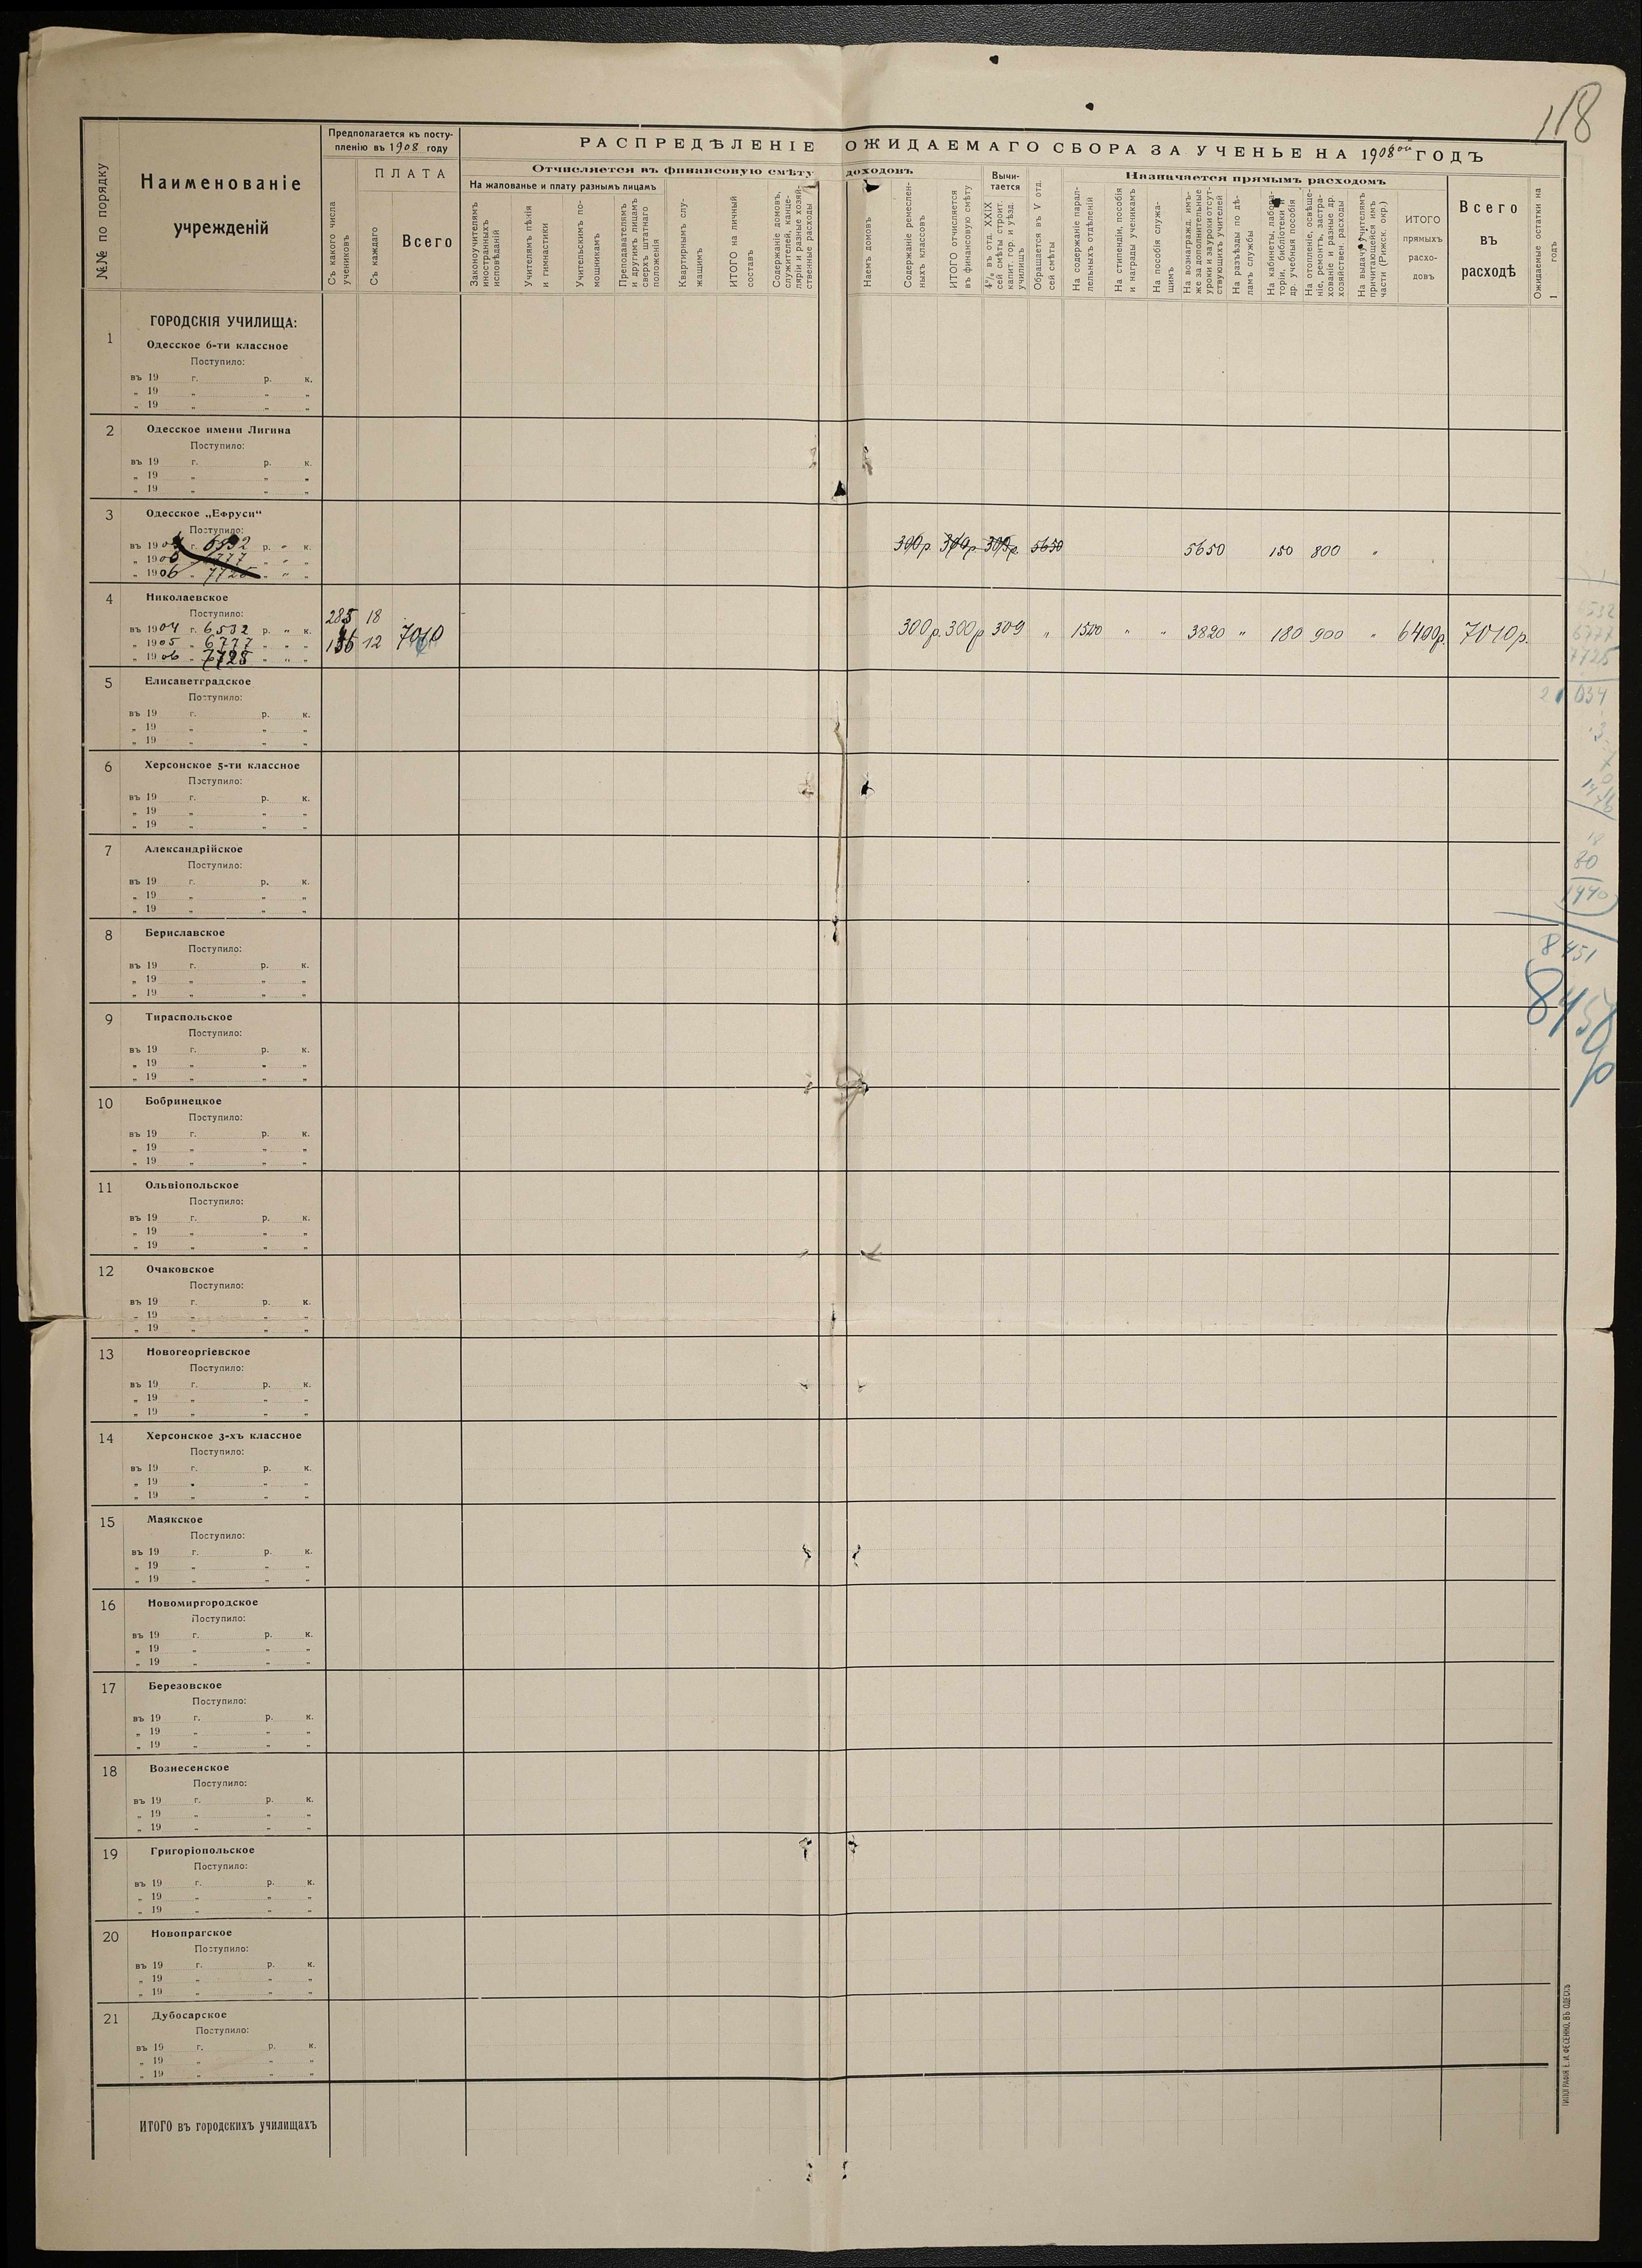 118
№№ по порядку
Наименованіе
учрежденій
Предполагается къ посту-
пленію въ 1908 году
Съ какого числа
учениковъ
ПЛАТА
Съ каждаго
Всего
РАСПРЕДѢЛЕНІЕ ОЖИДАЕМАГО СБОРА ЗА УЧЕНЬЕ НА 1908 ГОДЪ
Отчисляется въ финансовую смѣту доходовъ
На жалованье и плату разнымъ лицамъ
Законоучителямъ
иностранныхъ
исповѣданій
Учителямъ пѣнія
и гимнастики
Учительскимъ по-
мощникамъ
Преподавателямъ
и другимъ лицамъ
сверхъ штатнаго
положенія
Квартирнымъ слу-
жащимъ
ИТОГО на личный
составъ
Содержаніе домовъ,
служителей, канце-
ляріи и разные хозяй-
ственные расходы
Наемъ домовъ
Содержаніе ремеслен-
ныхъ классовъ
ИТОГО отчисляется
въ финансовую смѣту
Вычи-
тается
4% въ отд. XXIX
сей смѣты строит.
капит. гор. и уѣзд.
училищъ
Обращается въ V отд.
сей смѣты
Назначается прямымъ расходомъ
На содержаніе парал-
лельныхъ отдѣленій
На стипендіи, пособія
и награды ученикамъ
На пособія служа-
щимъ
На вознагражд. имъ-
же за дополнительные
уроки и за уроки отсут-
ствующихъ учителей
На разъѣзды по дѣ-
ламъ службы
На кабинеты, лабора-
торіи, библіотеки и
др. учебныя пособія
На отопленіе, освѣще-
ніе, ремонтъ, застра-
хованіе и разные др.
хозяйствен. расходы
На выдачу учителямъ
причитающейся имъ
части (Рижск. окр.)
ИТОГО
прямыхъ
расхо-
довъ
Всего
въ
расходѣ
Ожидаемые остатки на
1 годъ
ГОРОДСКІЯ УЧИЛИЩА:
1 Одесское 6-ти классное
Поступило:
въ 19 г. р. к.
„ 19 „ „ „
„ 19 „ „ „
2 Одесское имени Лигина
Поступило:
въ 19 г. р. к.
„ 19 „ „ „
„ 19 „ „ „
3 Одесское „Ефруси“
Поступило:
въ 1904 г. 6532 р. „ к.
„ 1905 „ 6777 „ „ „
„ 1906 „ 7725 „ „ „
300р. 300р 309р. 5650 5650 150 800 „
4 Николаевское
Поступило:
въ 1904 г. 6532 р. „ к.
„ 1905 „ 6777 „ „ „
„ 1906 „ 7725 „ „ „
285 18
12 7010
300р. 300р 309 „ 1500 „ „ 3820 „ 180 900 „ 6400р. 7010р.
6532
6777
7725
21034
5 Елисаветградское
Поступило:
въ 19 г. р. к.
„ 19 „ „ „
„ 19 „ „ „
6 Херсонское 5-ти классное
Поступило:
въ 19 г. р. к.
„ 19 „ „ „
„ 19 „ „ „
7 Александрійское
Поступило:
въ 19 г. р. к.
„ 19 „ „ „
„ 19 „ „ „
18
80
1440
8 Бериславское
Поступило:
въ 19 г. р. к.
„ 19 „ „ „
„ 19 „ „ „
8451
8450р
9 Тираспольское
Поступило:
въ 19 г. р. к.
„ 19 „ „ „
„ 19 „ „ „
10 Бобринецкое
Поступило:
въ 19 г. р. к.
„ 19 „ „ „
„ 19 „ „ „
11 Ольвіопольское
Поступило:
въ 19 г. р. к.
„ 19 „ „ „
„ 19 „ „ „
12 Очаковское
Поступило:
въ 19 г. р. к.
„ 19 „ „ „
„ 19 „ „ „
13 Новогеоргіевское
Поступило:
въ 19 г. р. к.
„ 19 „ „ „
„ 19 „ „ „
14 Херсонское 3-хъ классное
Поступило:
въ 19 г. р. к.
„ 19 „ „ „
„ 19 „ „ „
15 Маякское
Поступило:
въ 19 г. р. к.
„ 19 „ „ „
„ 19 „ „ „
16 Новомиргородское
Поступило:
въ 19 г. р. к.
„ 19 „ „ „
„ 19 „ „ „
17 Березовское
Поступило:
въ 19 г. р. к.
„ 19 „ „ „
„ 19 „ „ „
18 Вознесенское
Поступило:
въ 19 г. р. к.
„ 19 „ „ „
„ 19 „ „ „
19 Григоріопольское
Поступило:
въ 19 г. р. к.
„ 19 „ „ „
„ 19 „ „ „
20 Новопрагское
Поступило:
въ 19 г. р. к.
„ 19 „ „ „
„ 19 „ „ „
21 Дубосарское
Поступило:
въ 19 г. р. к.
„ 19 „ „ „
„ 19 „ „ „
ИТОГО въ городскихъ училищахъ
ТИПОГРАФІЯ Е. И. ФЕСЕНКО, ВЪ ОДЕССѢ